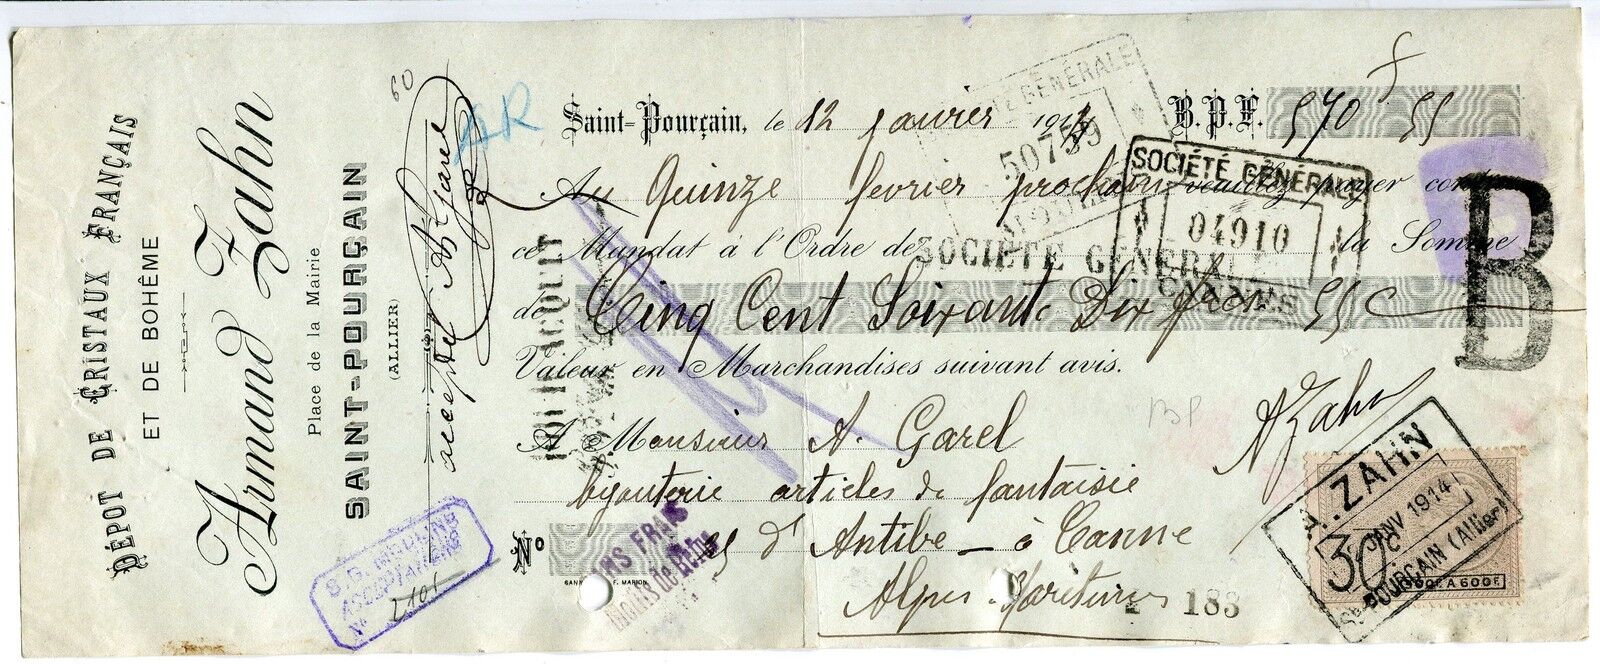 DÉPÔT DE CRISTAUX FRANÇAIS
ET DE BOHÊME
Armand Zahn
Place de la Mairie
SAINT-POURÇAIN
(ALLIER)
accepté A. Garel
60
AR
Saint-Pourçain, le 12 Janvier 1914 B.P.F. 570 55
Au Quinze fevrier prochain veuillez payer contre
ce Mandat à l'Ordre de la Somme
de Cinq Cent Soixante Dix frcs 55 c
Valeur en Marchandises suivant avis.
A Zahn
A Monsieur A. Garel
bijouterie articles de fantaisie
N° d'Antibe - à Canne
Alpes Maritimes
GANNAT F. MARION
SOCIÉTÉ GÉNÉRALE
50759
SOCIÉTÉ GÉNÉRALE
04910
CANNES
SOCIÉTÉ GÉNÉRALE
POUR ACQUIT
B
BP
S.G. MOULINS
ACCEPTATIONS
N° 2101
SANS FRAIS
188
A. ZAHN
JANV 1914
St POURÇAIN (Allier)
30c
500F À 600F